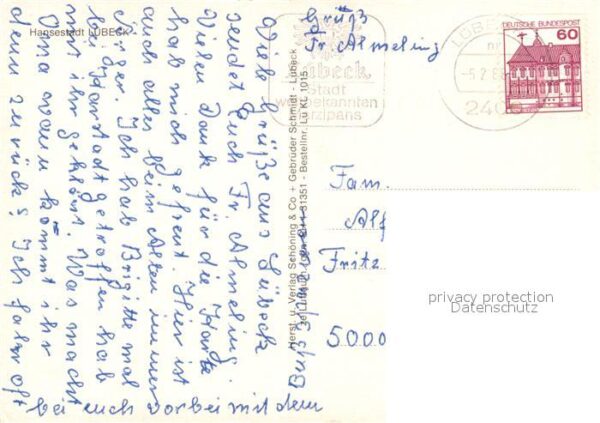 Hansestadt LÜBECK
Viele Grüße aus Lübeck
sendet Euch Fr. Almeling.
Vielen Dank für die Karte
hab mich gefreut. Hier ist
auch alles beim Alten immer
Ärger. Ich hab Brigitte mal
bei Karstadt getroffen hab
mit ihr geklönt. Was macht
Oma wann kommt ihr
denn zurück? Ich fahr oft
bei euch vorbei mit dem
Bus
Gruß
Fr. Almeling
Herst. u. Verlag Schöning & Co + Gebrüder Schmidt - Lübeck
Bestellnr. Lü KL 1015
Lübeck
Stadt
weltbekannten
Marzipans
5.2.8
240
DEUTSCHE BUNDESPOST
60
Fam.
Alf
Fritz
5000
privacy protection
Datenschutz